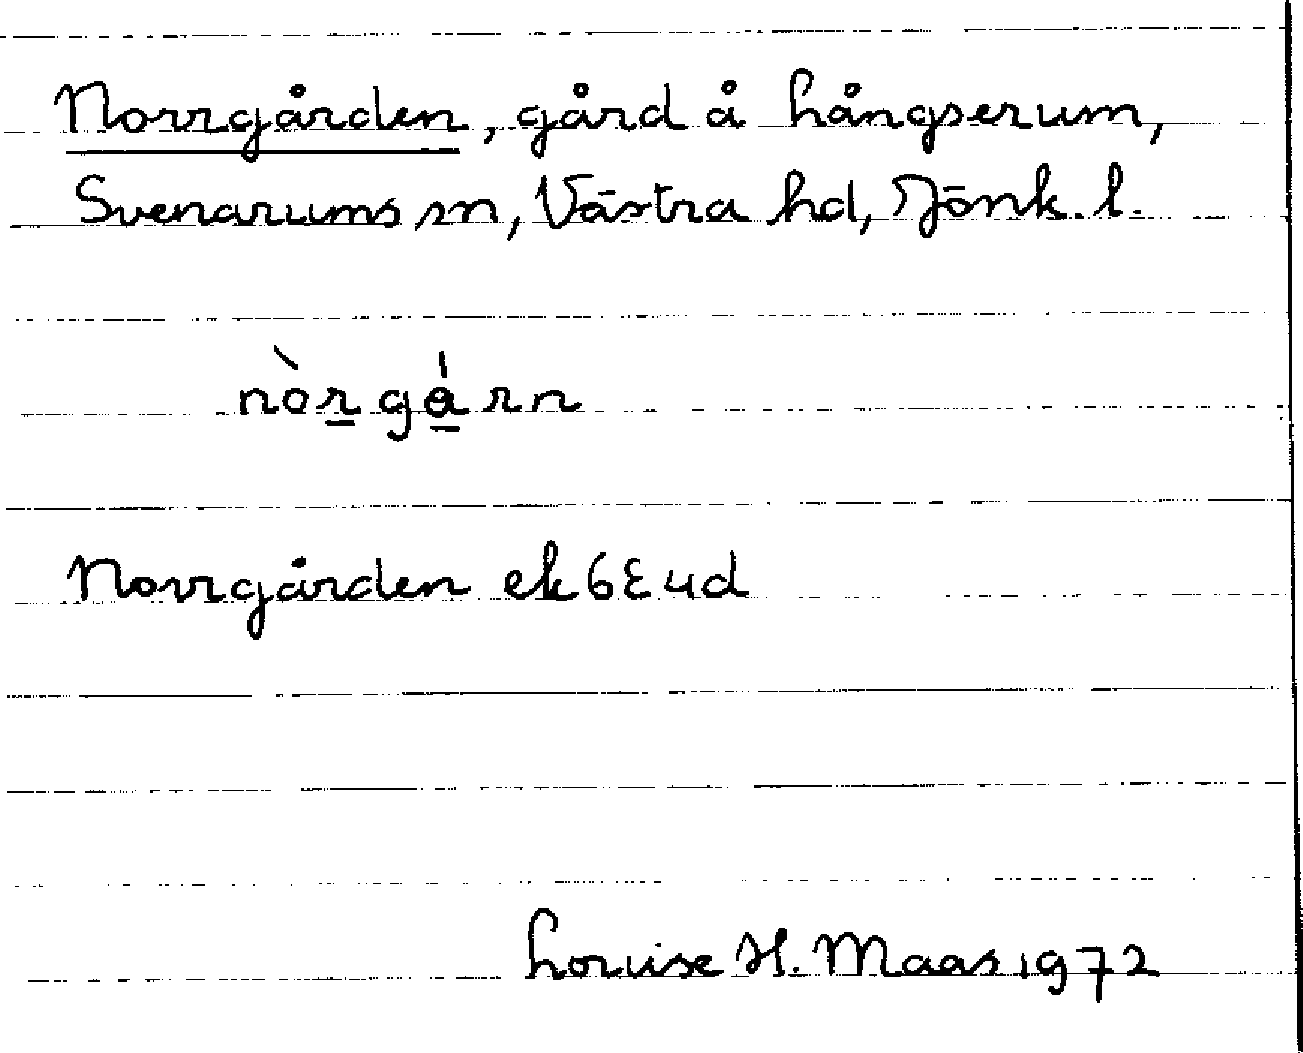 Norrgården, gård å Långserum,
Svenarums sn, Västra hd, Jönk. l.
nòrgårn
Norrgården ek 6E4d
Louise H. Maas 1972